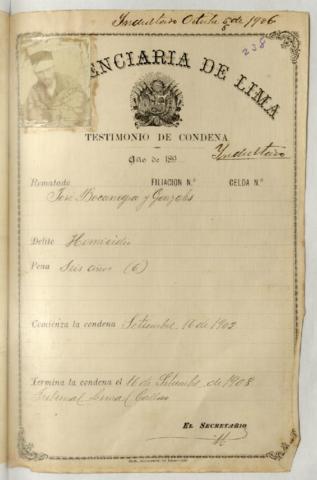 Indultado Octubre 8 de 1906
238
ENCIARIA DE LIMA
TESTIMONIO DE CONDENA
Año de 189
Indultado
Rematado FILIACION N.º CELDA N.º
José Bocanegra y Gonzales
Delito Homicidio
Pena Seis años (6)
Comienza la condena Setiembre 16 de 1902
Termina la condena el 16 de Setiembre de 1908
Tribunal Lima Callao
EL SECRETARIO